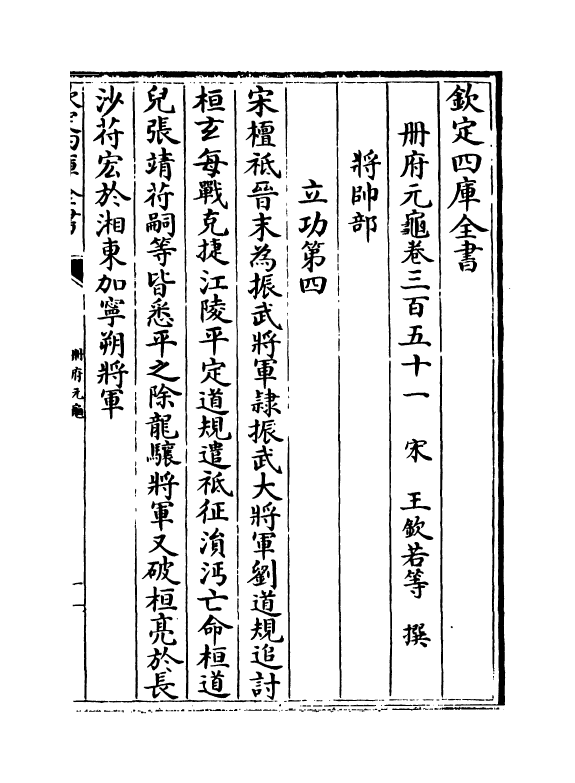 欽定四庫全書
冊府元龜卷三百五十一　宋　王欽若等　撰
將帥部
立功第四
宋檀祗晉末為振武將軍隷振武大將軍劉道規追討
桓玄每戰克捷江陵平定道規遣祗征溳沔亡命桓道
兒張靖苻嗣等皆悉平之除龍驤將軍又破桓亮於長
沙苻宏於湘東加寧朔將軍
冊府元龜